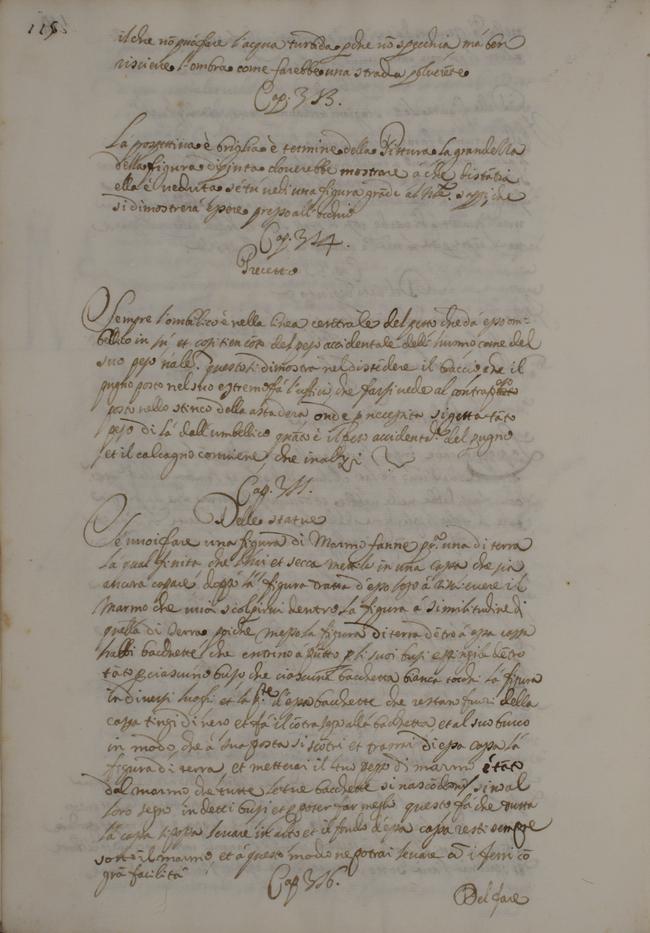 115
il che nō può fare l'acqua turbida perche nō specchia, ma ben
riceve l'ombra come farebbe una strada polverēte
Cap. 313.
La prospettiva è briglia è termine della Pittura, la grandezza
della figura dipinta doverebbe mostrare à che distātia
ella è veduta, se tu vedi una figura grāde al sappi, che
si dimostrerà essere presso all'occhio
Cap. 314.
Precetto
Sempre l'ombilico è nella linea centrale del petto che da esso om-
bellico in sù et così tien cōto del peso accidentale dell'huomo come del
suo peso n'ale. questo si dimostra nel distēdere il braccio, che il
pugno posto nel suo estremo fà l'uffitio, che farsi vede al contrapeso
posto nello stinco della astadera onde p necessità si getta tāto
peso di là dall'umbellico quāto è il peso accidentale del pugno
et il calcagno conviene, che inalzi
Cap. 315.
Delle statue
Se vuoi fare una figura di Marmo fanne pa. una di terra
la qual finita, che l'hai et secca mettila in una cassa che sia
ancora capace, doppò la figura tratta d'esso logo à ricevere il
marmo che vuoi scolpirvi dentro la figura à similitudine di
quella di terra, poiche messo la figura di terra dētro à essa cassa
habbi bacchette che entrino à pūtto p li suoi busi e spingile dētro
tāto p ciascuno buso che ciascuna bacchetta bianca tocchi la figura
in diversi luoghi et la pte d'esse bacchette che restan fuori della
cassa tingi di nero et fà il cōtrasegno alla bacchetta et al suo buco
in modo, che à tua posta si scōtri et trarrai di essa cassa la
figura di terra, et metterai il tuo pezzo di marmo è tāto
dal marmo che tutte le tue bacchette si nascōdano sino al
loro segno in detti busi et p poter far meglio questo fà che tutta
la cassa si possa levare in alto et il fondo d'essa cassa resti sempre
sotto il marmo, et à questo modo ne potrai levare cō i ferri cō
grā facilità
Cap 316.
Del fare